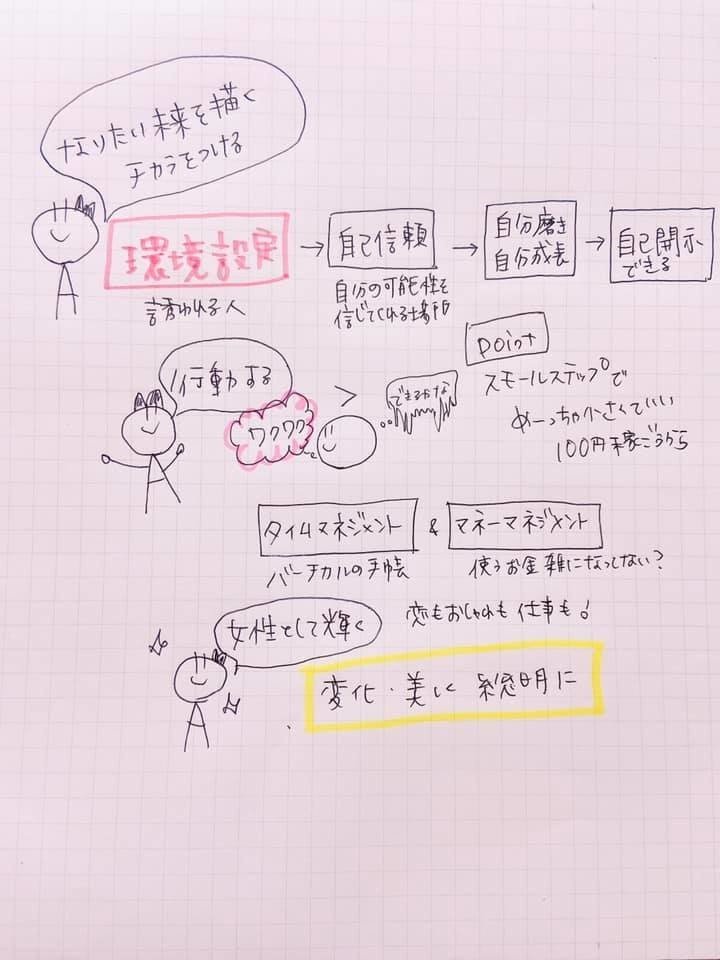 なりたい未来を描く
チカラをつける
環境設定
→
自己信頼
→
自分磨き
自分成長
→
自己開示
できる
誘われる人
自分の可能性を
信じてくれる場所
行動する
ワクワク
>
できるかな
point
スモールステップで
めーっちゃ小さくていい
100円稼ごうから
タイムマネジメント
&
マネーマネジメント
バーチカルの手帳
使うお金雑になってない?
女性として輝く
恋もおしゃれも仕事も!
変化・美しく 総明に